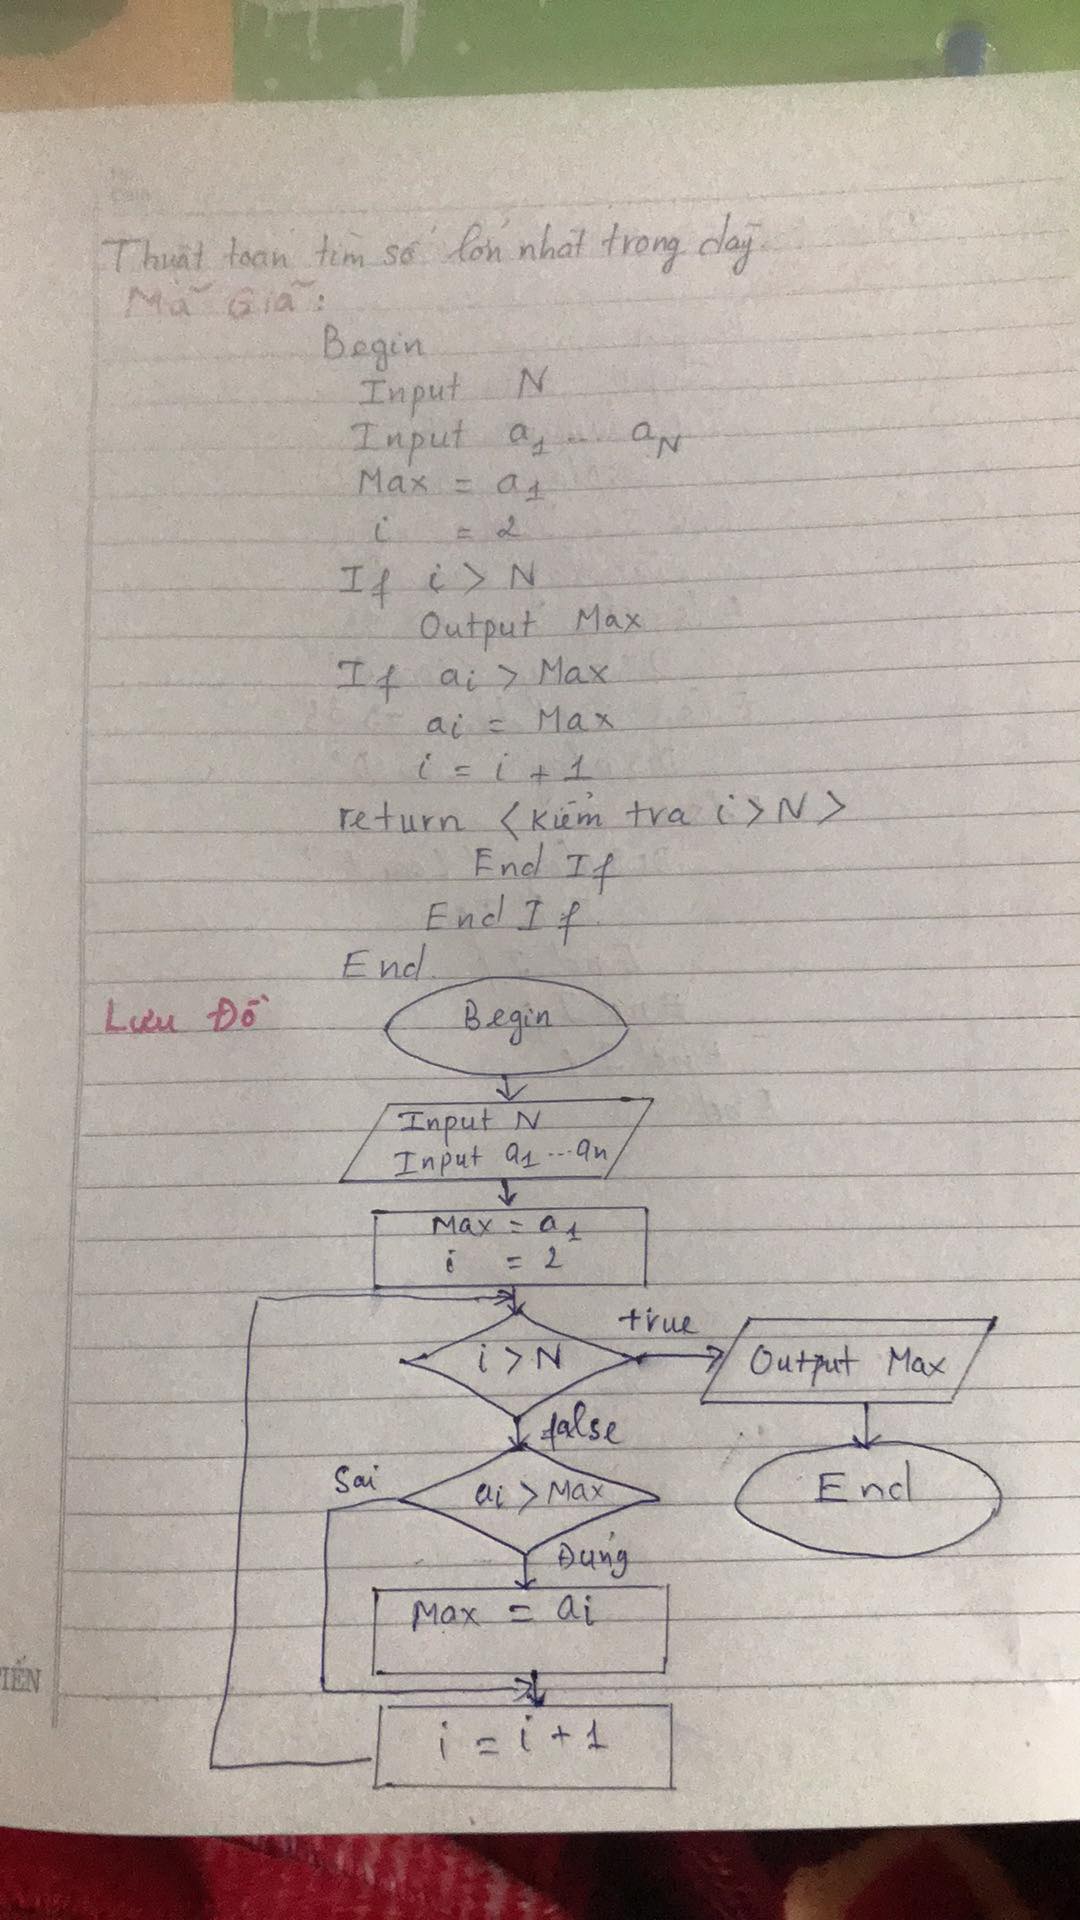 Thuật toán tìm số lớn nhất trong dãy.
Mã Giã:
Begin
Input N
Input a1 ... aN
Max = a1
i = 2
If i > N
Output Max
If ai > Max
ai = Max
i = i + 1
return <kiểm tra i > N>
End If
End If.
End.
Lưu Đồ
Begin
Input N
Input a1 ... an
Max = a1
i = 2
true
i > N
Output Max
false
Sai
ai > Max
End
Đúng
Max = ai
TIẾN
i = i + 1